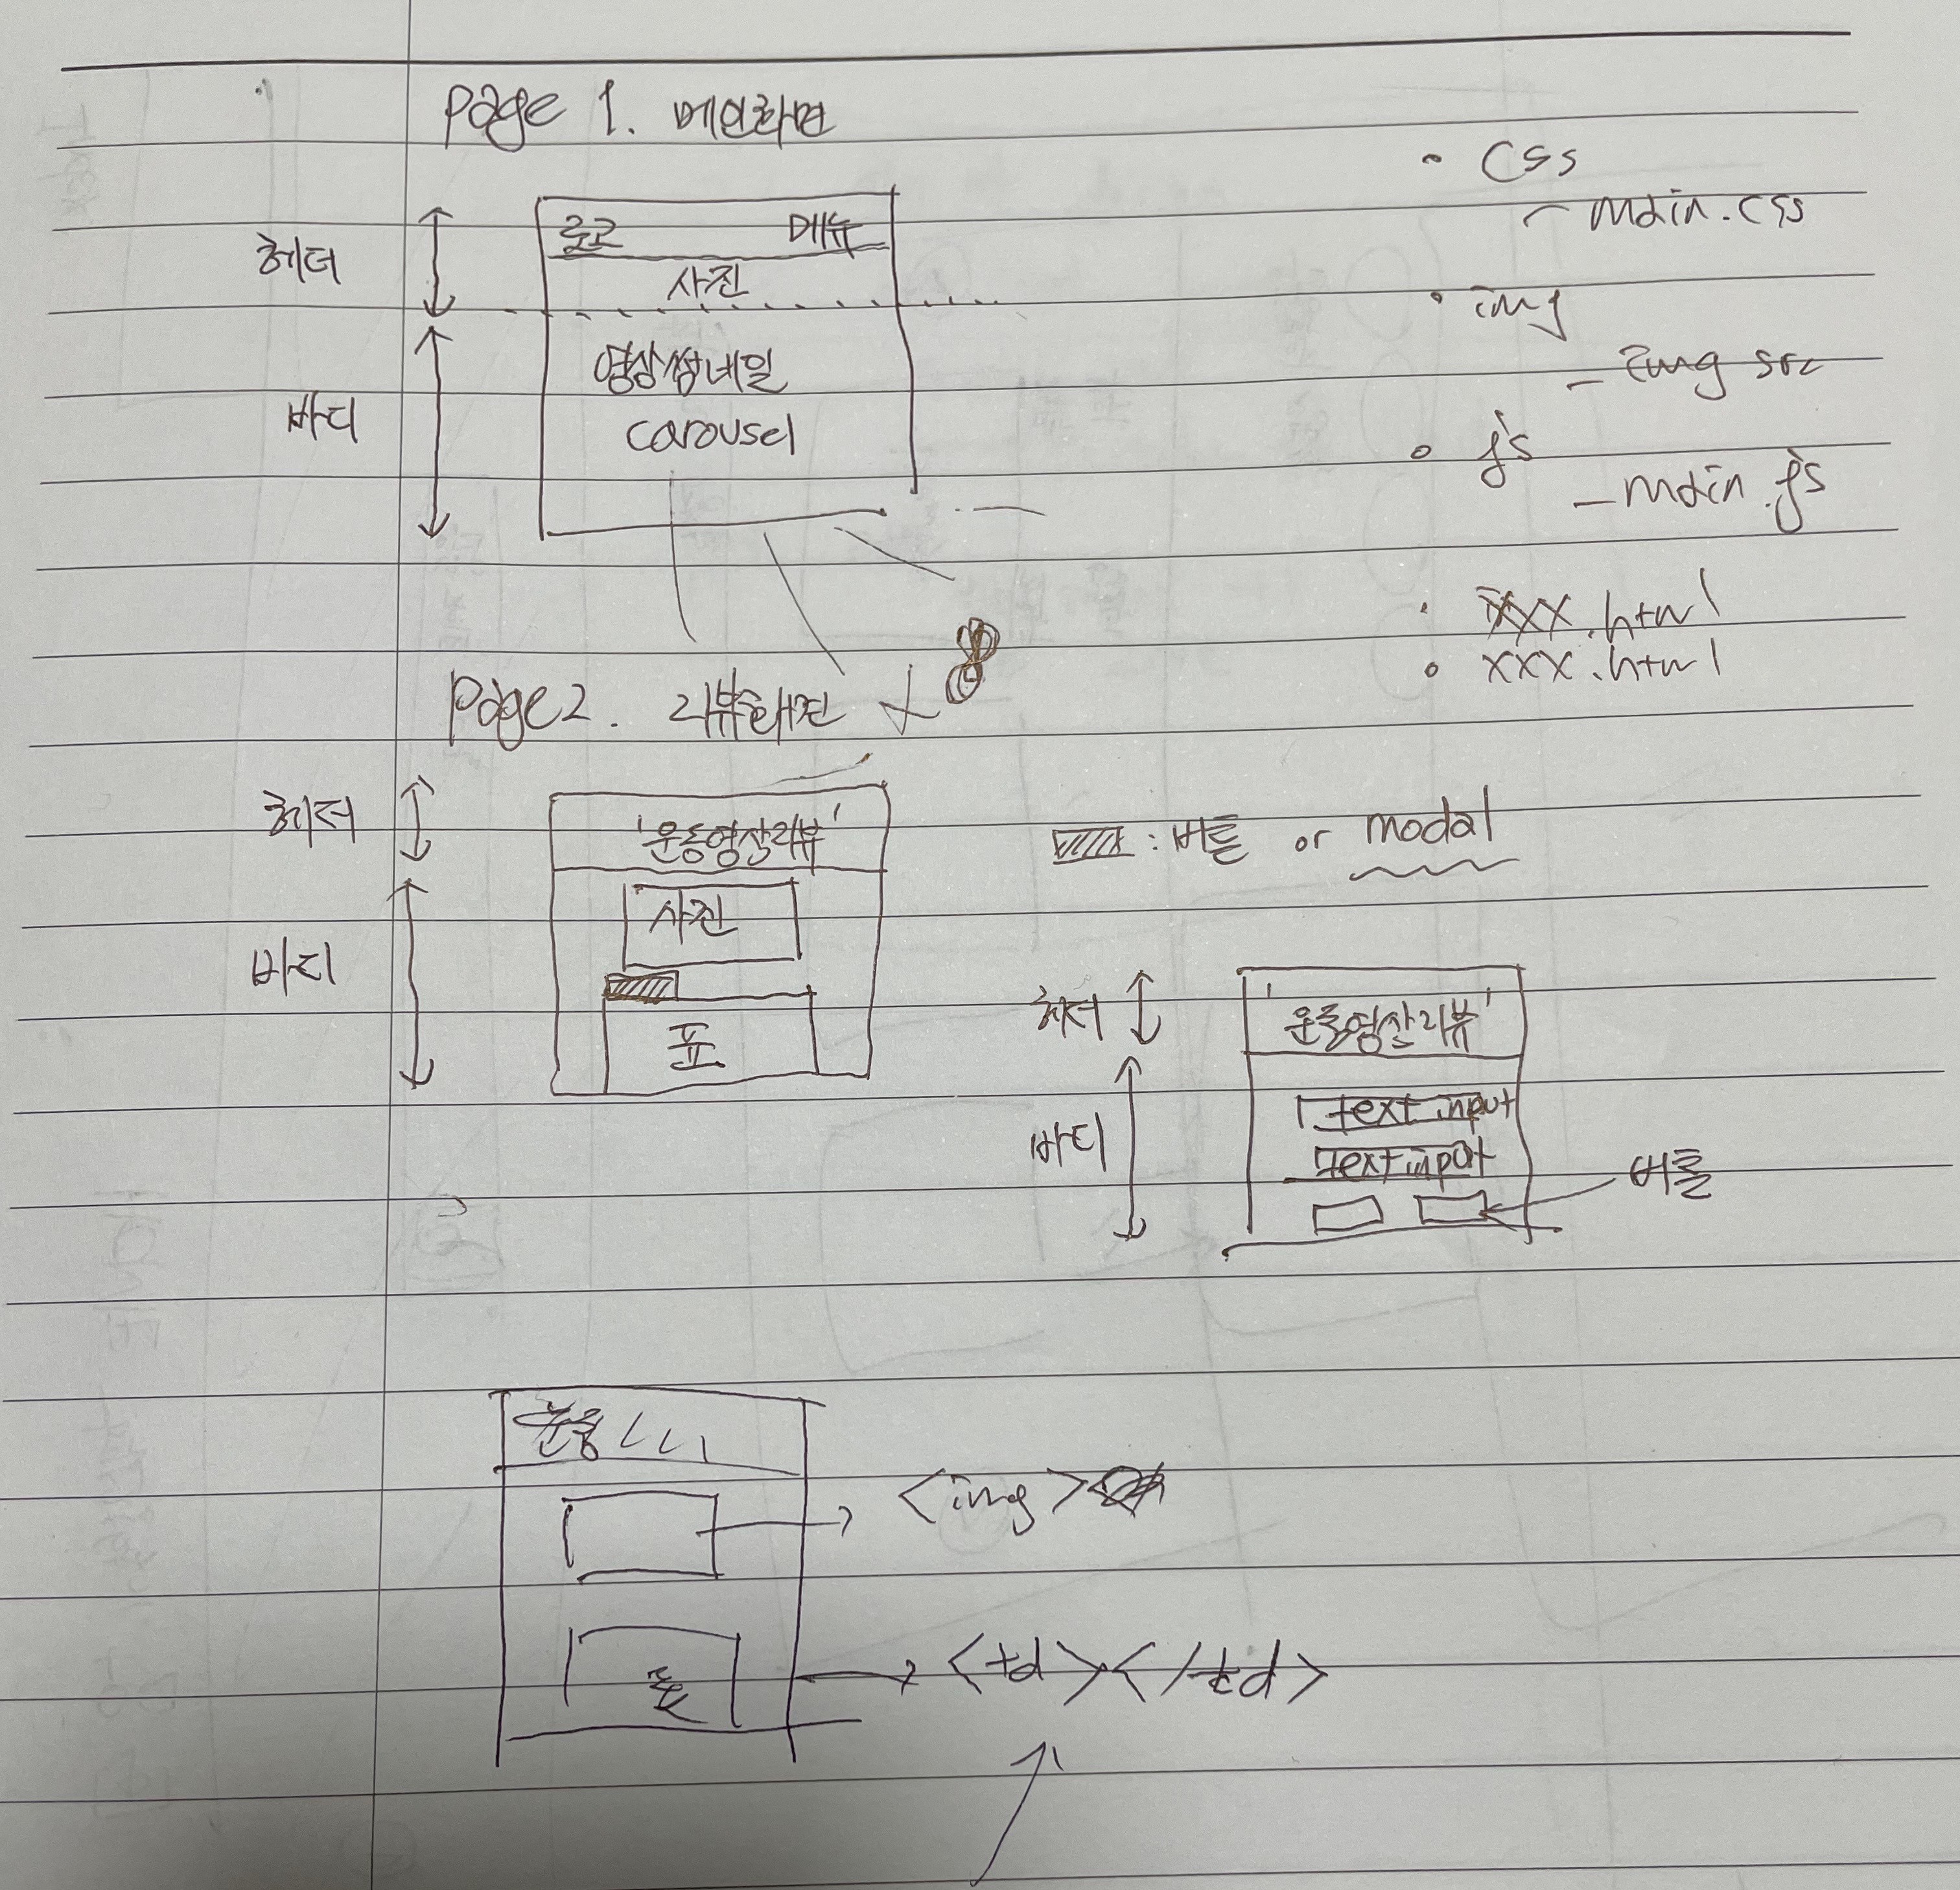 page 1. 메인화면
헤더
로고 메뉴
사진
바디
영상썸네일
carousel
• css
- main.css
• img
- img src
• js
- main.js
• xxx.html
• xxx.html
page 2. 리뷰하면 x 8
헤더
'운동영상리뷰'
바디
사진
표
: 버튼 or modal
헤더
'운동영상리뷰'
바디
text input
text input
버튼
운동
<img>
표
<td></td>